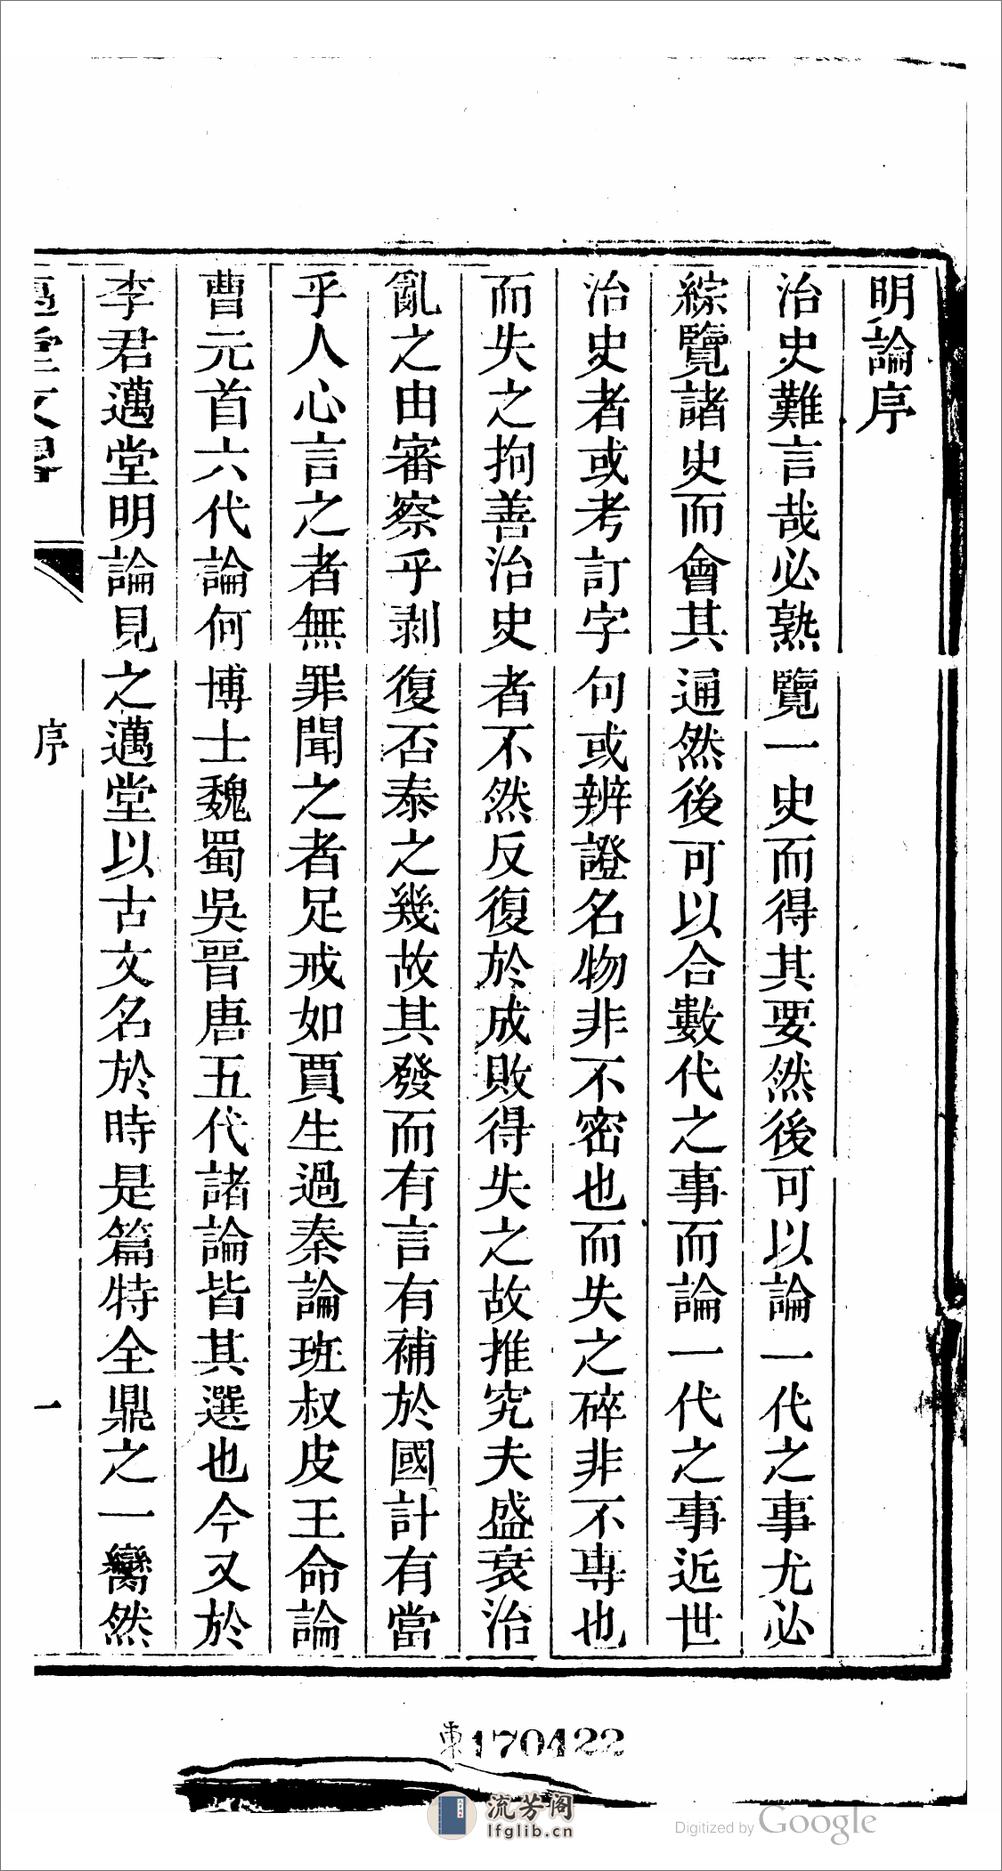 明論序
治史難言哉必熟覽一史而得其要然後可以論一代之事尤必
綜覽諸史而會其通然後可以合數代之事而論一代之事近世
治史者或考訂字句或辨證名物非不密也而失之碎非不專也
而失之拘善治史者不然反復於成敗得失之故推究夫盛衰治
亂之由審察乎剥復否泰之幾故其發而有言有補於國計有當
乎人心言之者無罪聞之者足戒如賈生過秦論班叔皮王命論
曹元首六代論何博士魏蜀吳晉唐五代諸論皆其選也今又於
李君邁堂明論見之邁堂以古文名於時是篇特全鼎之一臠然
邁堂文畧
序
一
東170422
流芳阁
lfglib.cn
Digitized by Google